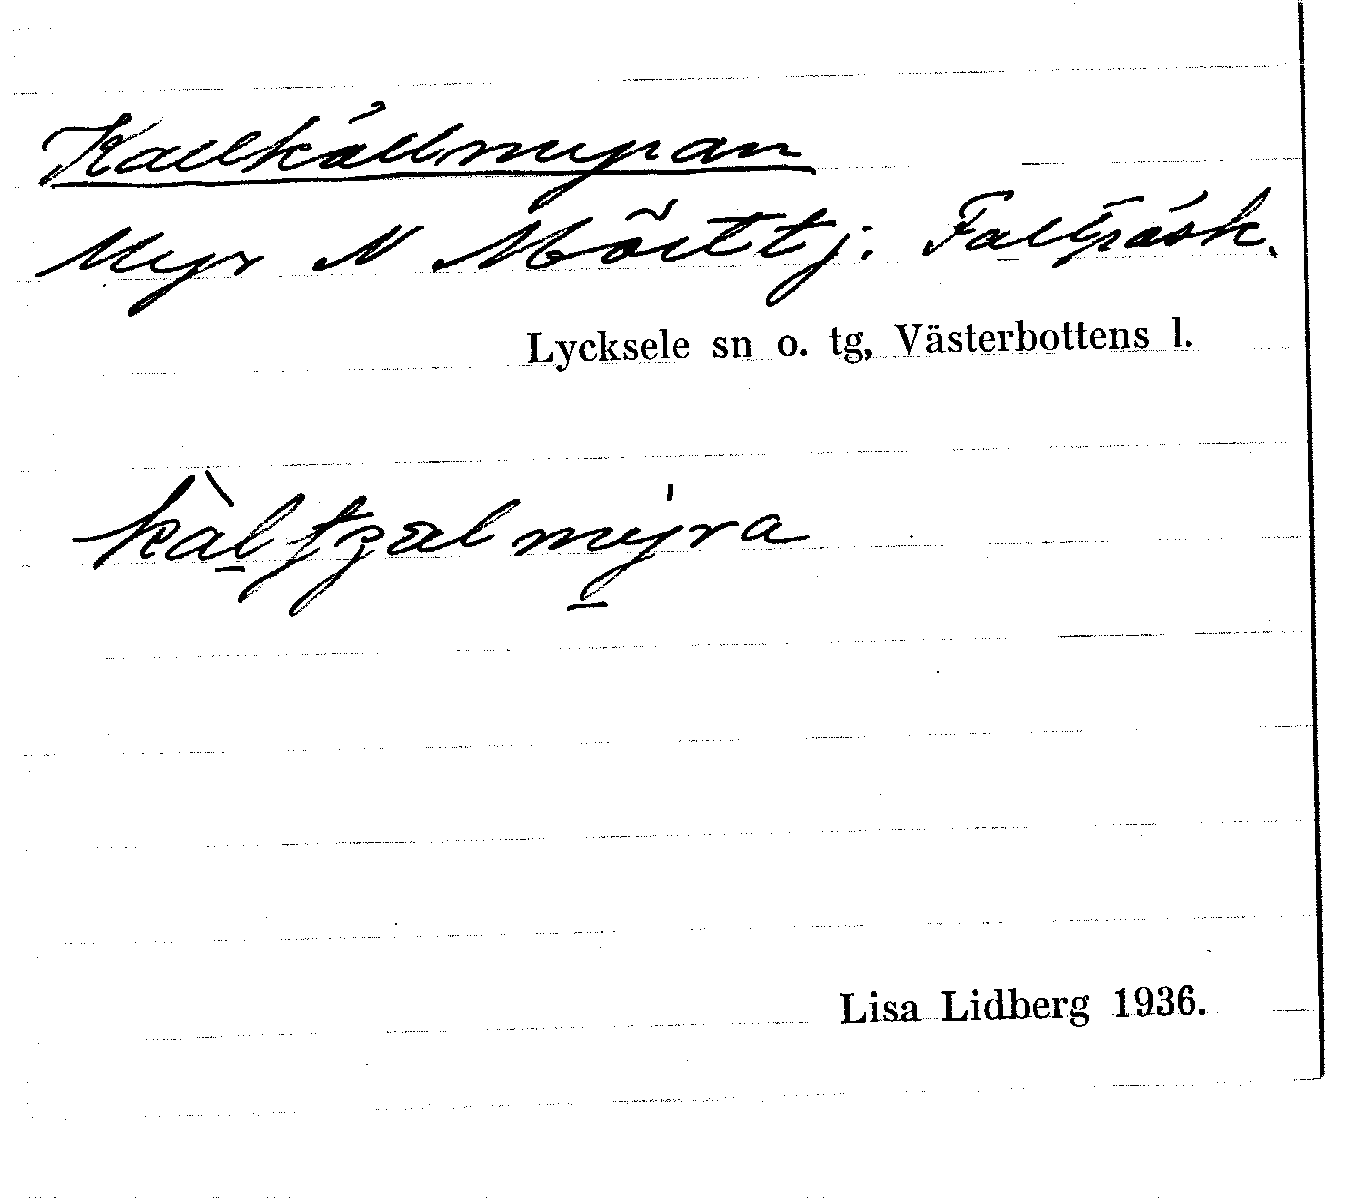 Kallkällmyran
Myr N Mörttj. Fallträsk.
Lycksele sn o. tg, Västerbottens l.
Lisa Lidberg 1936.